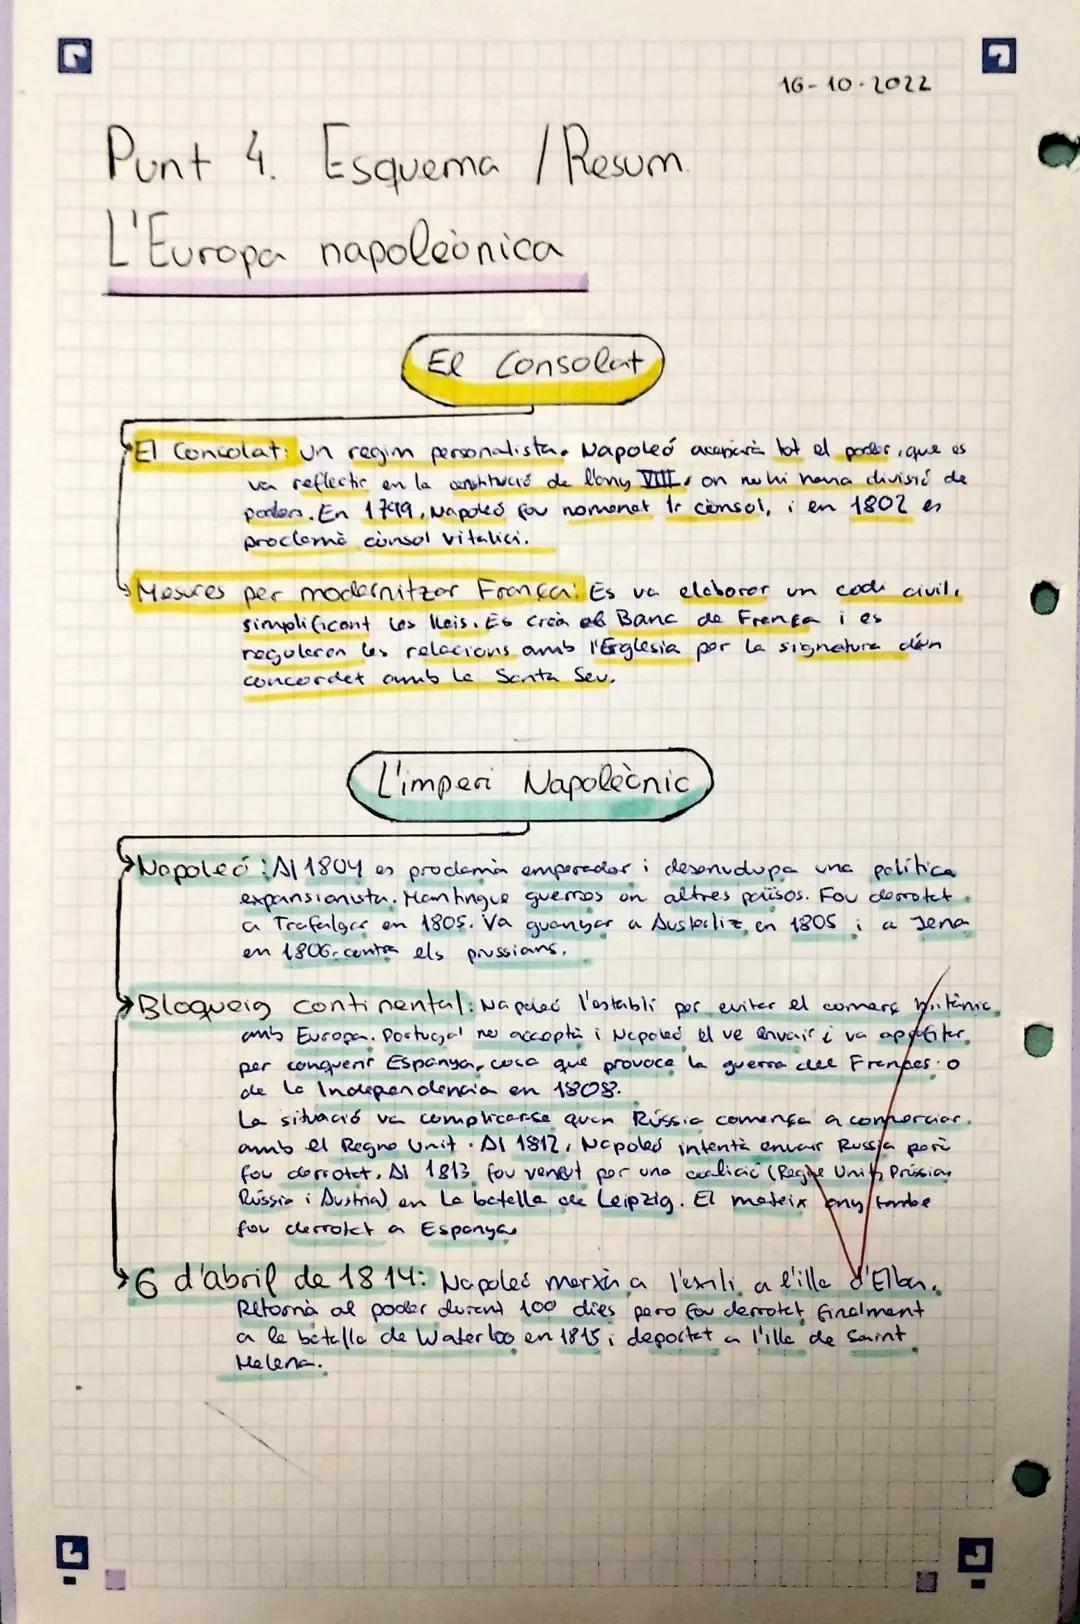 16-10-2022
Punt 4. Esquema / Resum.
L'Europa napoleònica
El Consolat
El Concolat: Un regim personalista. Napoleó acaparà tot el poder, que es
va reflectir en la constitució de l'any VIII, on no hi havia divisió de
poders. En 1799, Napoleó fou nomenat 1r cònsol, i en 1802 es
proclamà cònsol vitalici.
Mesures per modernitzar França: Es va elaborar un codi civil,
simplificant les lleis. Es creà el Banc de França i es
regularen les relacions amb l'Església per la signatura d'un
concordat amb la Santa Seu.
L'imperi Napoleònic
Napoleó: Al 1804 es proclamà emperador i desenvolupa una política
expansionista. Mantingué guerres en altres països. Fou derrotat
a Trafalgar en 1805. Va guanyar a Austerliz en 1805 i a Jena
en 1806, contra els prussians.
Bloqueig continental: Napoleó l'establí per evitar el comerç britànic
amb Europa. Portugal no acceptà i Napoleó el va envair i va aprofitar
per conquerir Espanya, cosa que provoca la guerra del Francès o
de la Independencia en 1808.
La situació va complicarse quan Rússia comença a comerciar
amb el Regne Unit. Al 1812, Napoleó intentà envair Russia però
fou derrotat. Al 1813 fou vençut per una coalició (Regne Unit, Prússia,
Rússia i Austria) en la batella de Leipzig. El mateix any tambe
fou derrotat a Espanya.
6 d'abril de 1814: Napoleó marxà a l'exili, a l'illa d'Elba.
Retornà al poder durant 100 dies pero fou derrotat finalment
a la batalla de Waterloo en 1815 i deportat a l'illa de Saint
Helena.